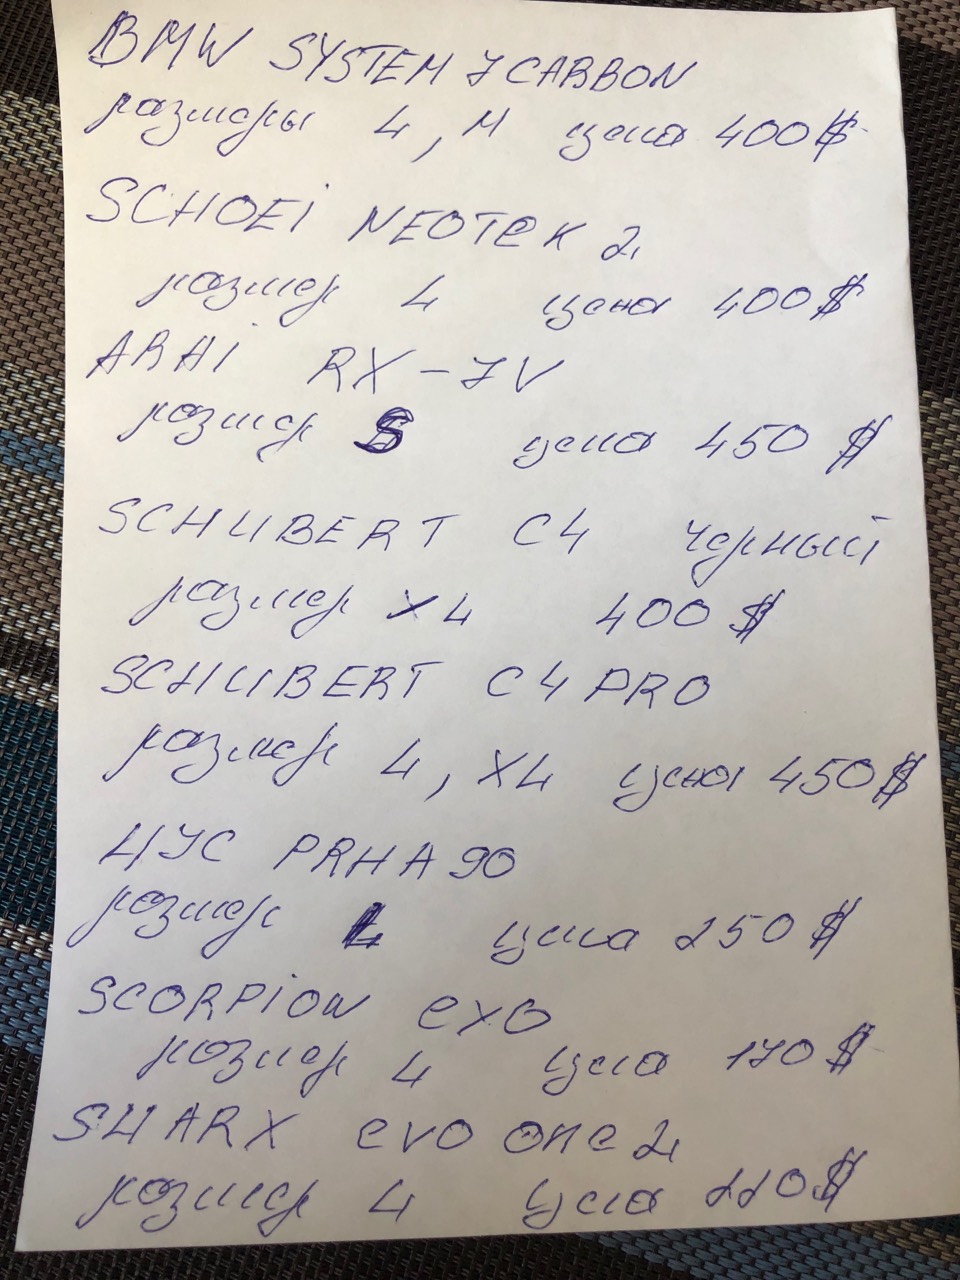 BMW SYSTEM 7 CARBON
размеры L, M цена 400$
SCHOEI NEOTEK 2
размер L цена 400$
ARAI RX-7V
размер S цена 450$
SCHUBERT C4 черный
размер XL 400$
SCHUBERT C4 PRO
размер L, XL цена 450$
HJC PRHA 90
размер L цена 250$
SCORPION EXO
размер L цена 170$
SHARX evo one 2
размер L цена 220$